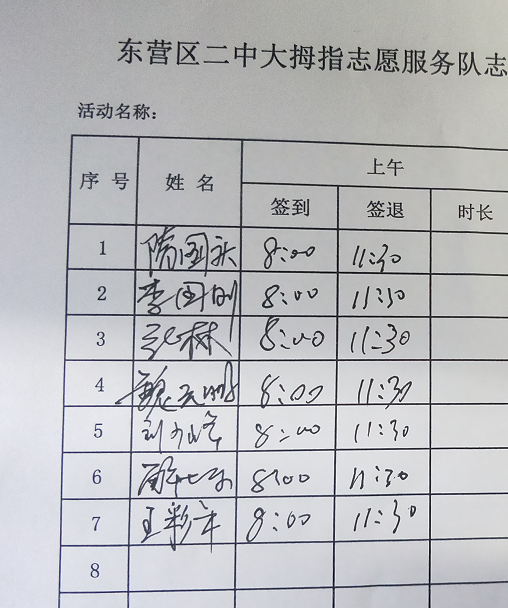 东营区二中大拇指志愿服务队志
活动名称：
序号 姓名 上午
签到 签退 时长
1 隋国庆 8:00 11:30
2 李国刚 8:00 11:30
3 张林 8:00 11:30
4 魏元明 8:00 11:30
5 8:00 11:30
6 8:00 11:30
7 王彩 8:00 11:30
8